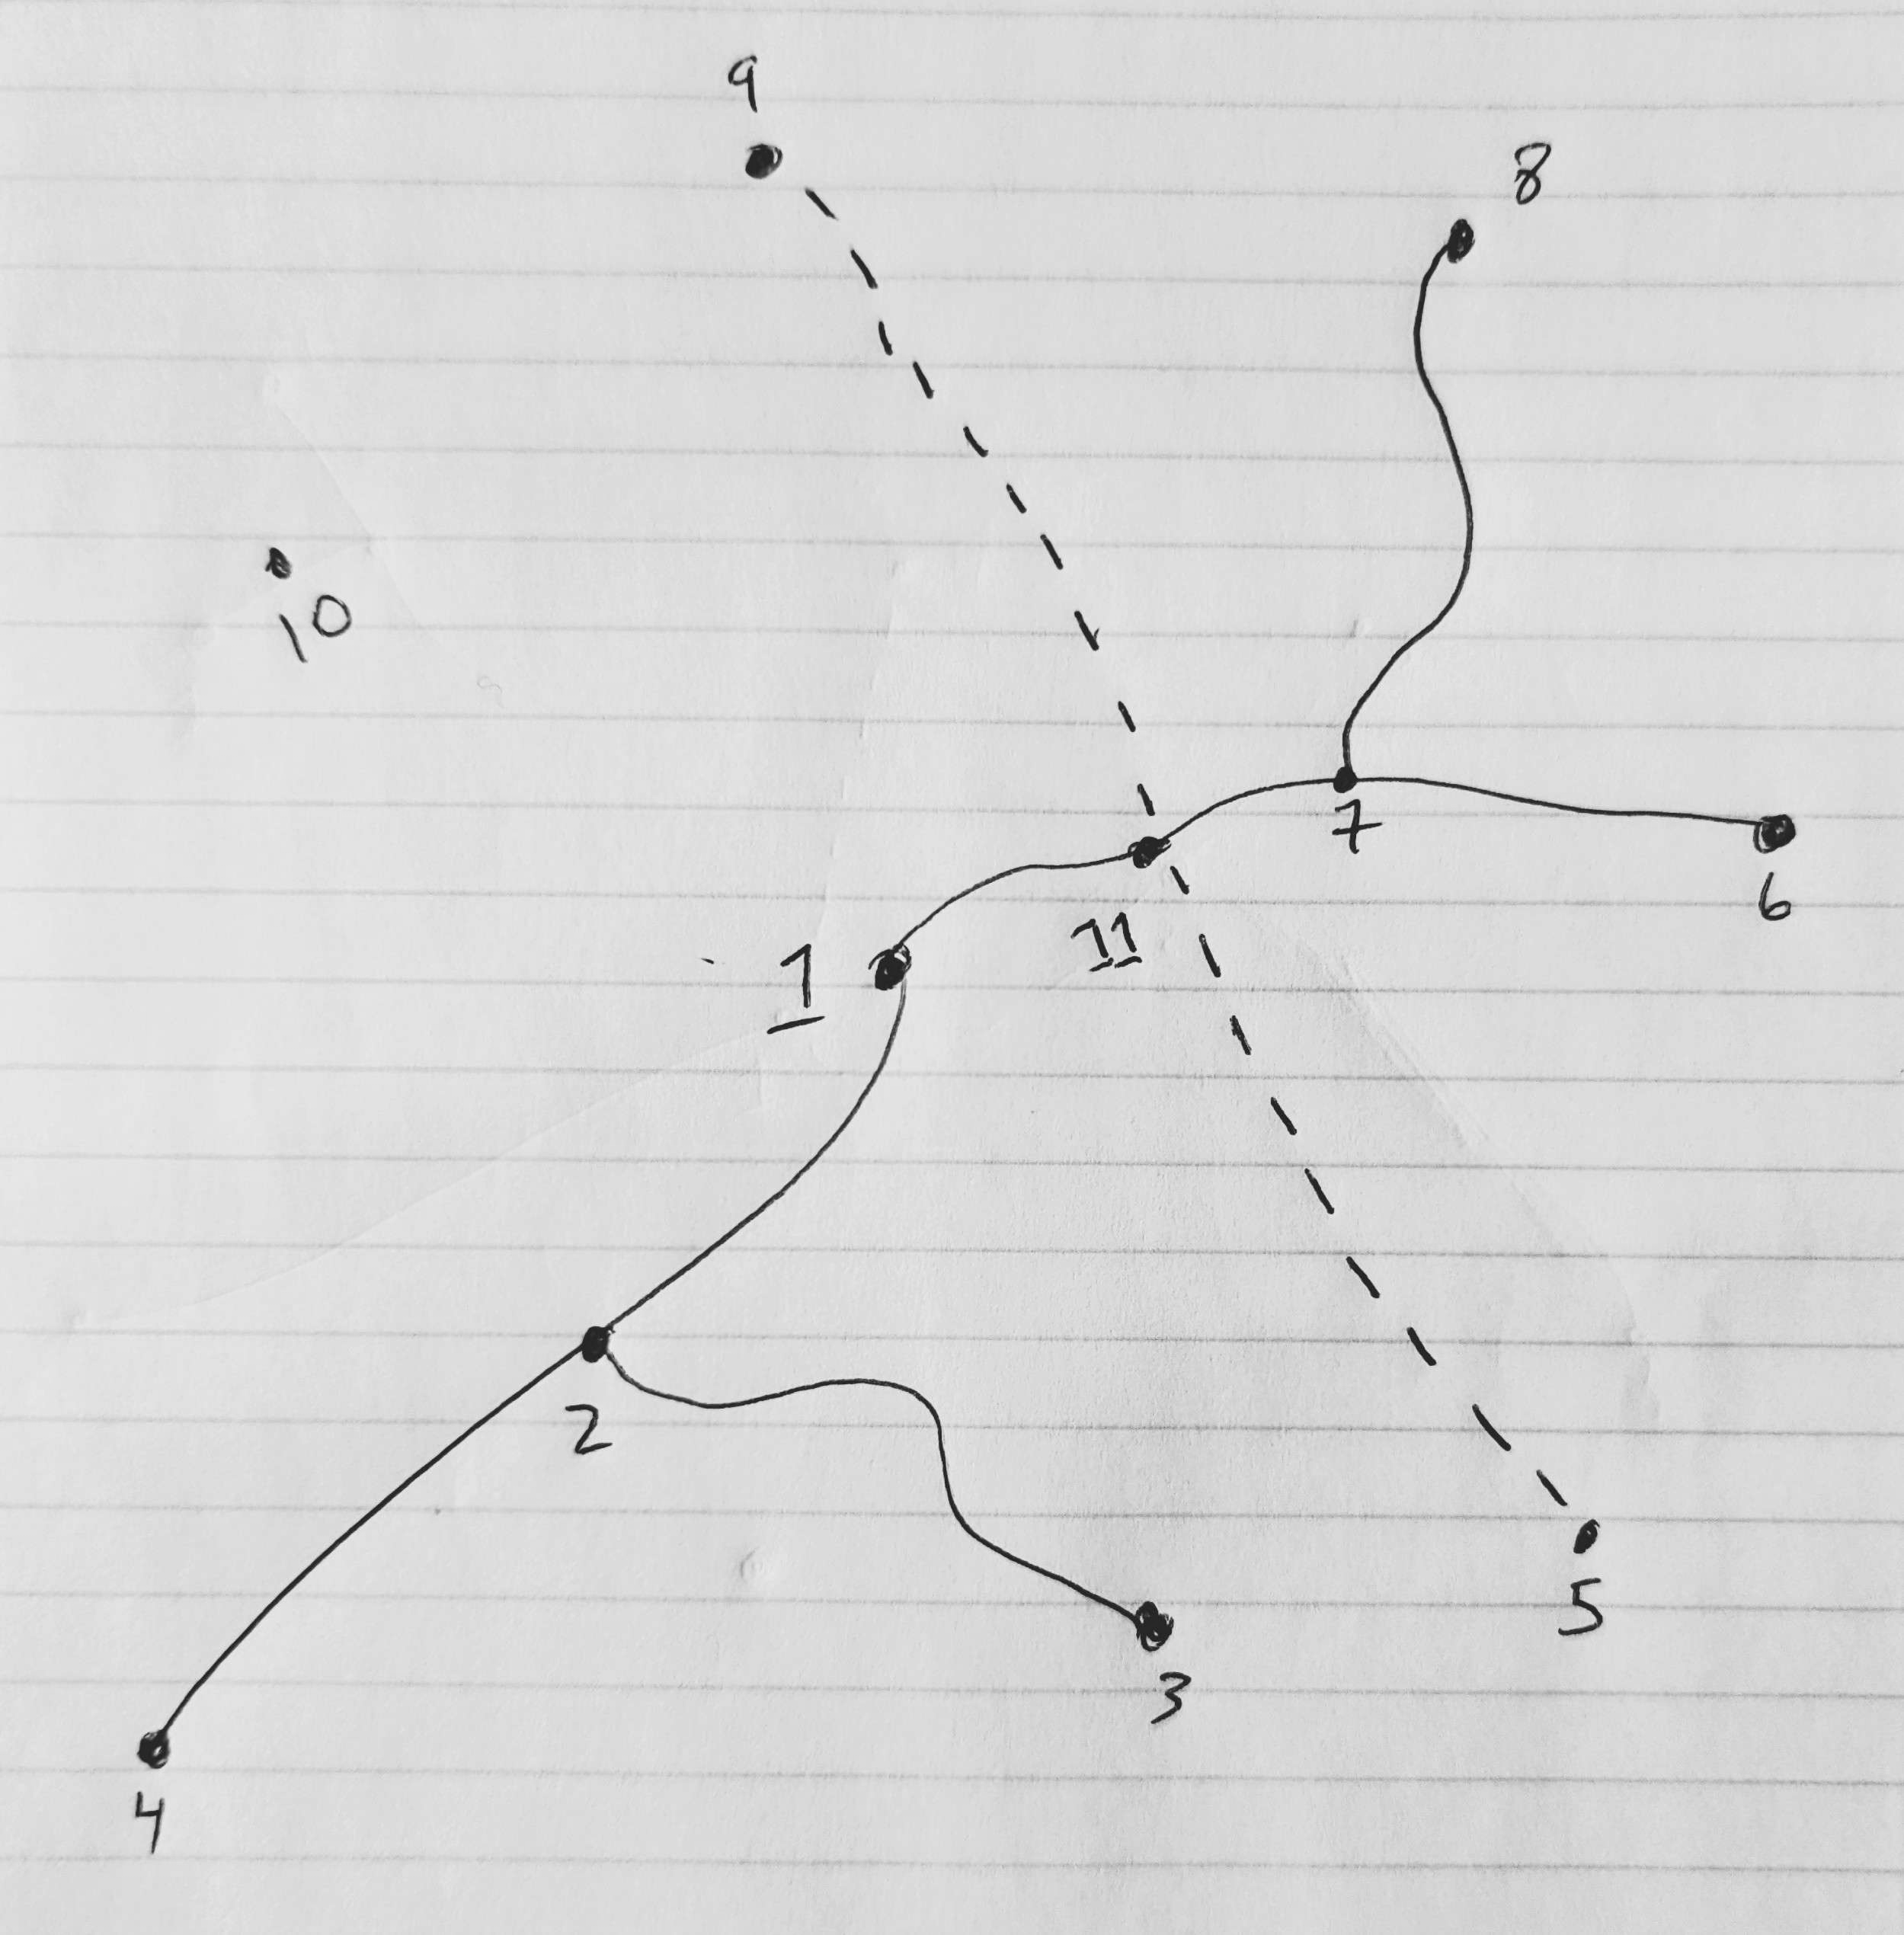 9
8
10
7
6
11
1
2
5
3
4